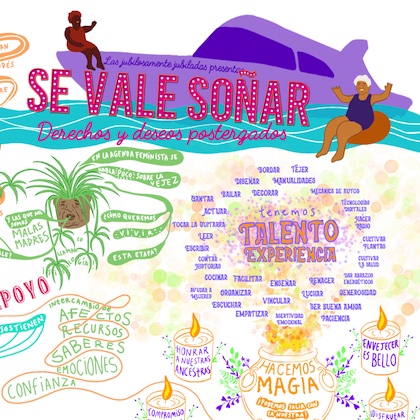 Las jubilosamente jubiladas presentan
SE VALE SOÑAR
Derechos y deseos postergados
EN LA AGENDA FEMINISTA SE
HABLA POCO SOBRE LA
VEJEZ
Y LAS QUE NO
SOMOS
MALAS
MADRES
¿CÓMO QUEREMOS
VIVIR
ESTA ETAPA?
APOYO
SOSTIENEN
INTERCAMBIO DE
AFECTOS
RECURSOS
SABERES
EMOCIONES
CONFIANZA
BORDAR
TEJER
DISEÑAR
MANUALIDADES
CANTAR
BAILAR
DECORAR
MECÁNICA DE AUTOS
ACTUAR
TECNOLOGÍAS
DIGITALES
TOCAR LA GUITARRA
HACER
RADIO
LEER
ESCRIBIR
CULTIVAR
PLANTAS
CONTAR
HISTORIAS
CULTIVAR
LA SALUD
tenemos
TALENTO
EXPERIENCIA
COCINAR
FACILITAR
ENSEÑAR
RENACER
DAR ABRAZOS
ENERGÉTICOS
AYUDAR A
MUJERES
ORGANIZAR
VINCULAR
LUCHAR
GENEROSIDAD
ESCUCHAR
EMPATIZAR
ASERTIVIDAD
EMOCIONAL
SER BUENA AMIGA
PACIENCIA
HONRAR
A NUESTRAS
ANCESTRAS
HACEMOS
MAGIA
ENVEJECER
ES BELLO
COMPROMISO
DISFRUTAR